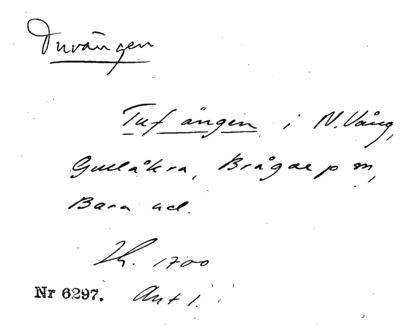 Duvängen
Tufängen i N. Vång,
Gullåkra, Brågarp sn,
Bara hd.
Lk. 1700
Nr 6297. Akt 1.